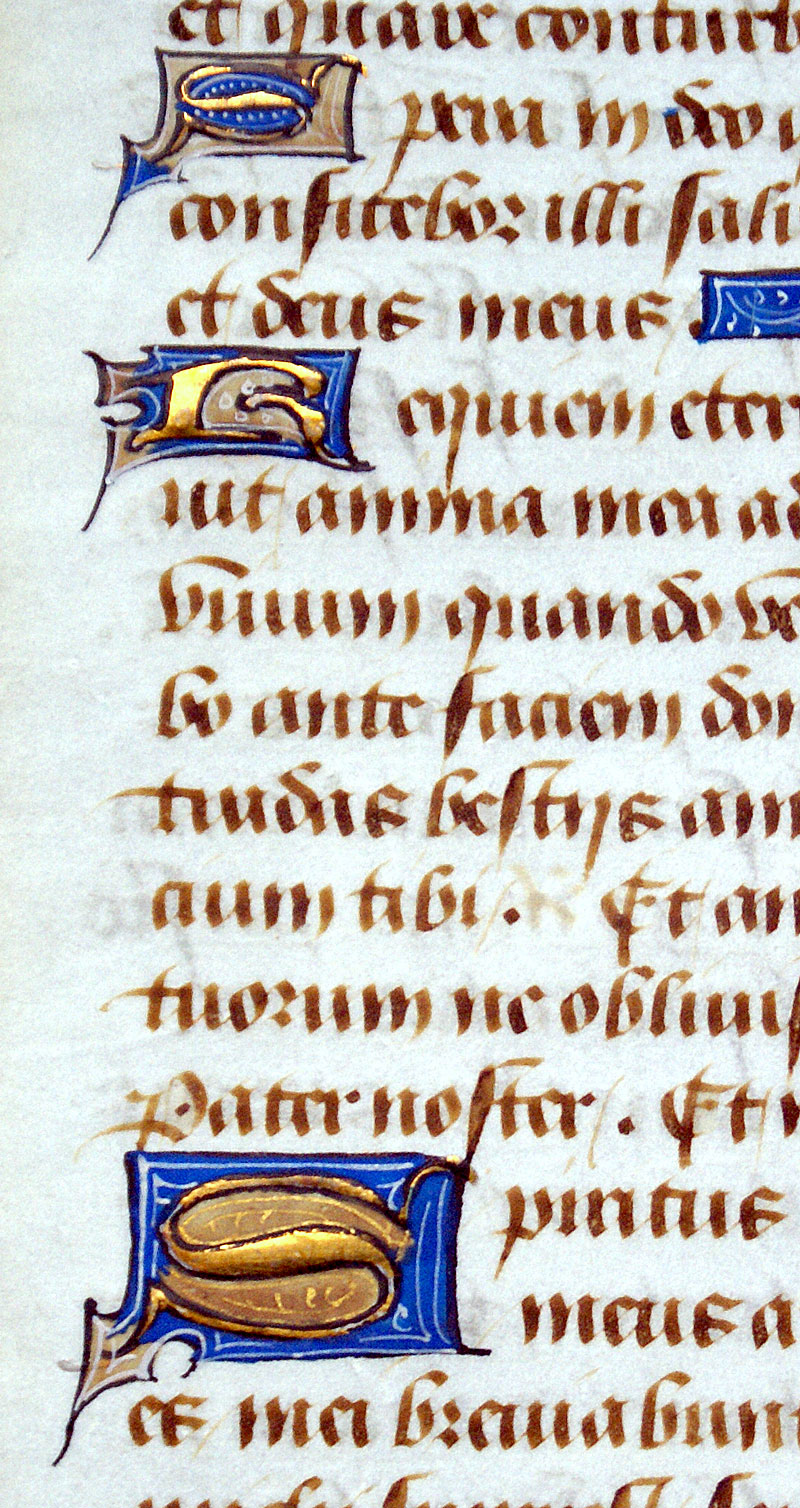 et quare conturb
Spera in deo
confitebor illi sal
et deus meus.
Requiem eter
uit anima mea ad
vivum quando ve
bo ante faciem dom
tradas bestijs anim
cium tibi. Et an
tuorum ne oblivis
Pater noster. Et
Spiritus
meus a
es mei breviabunt